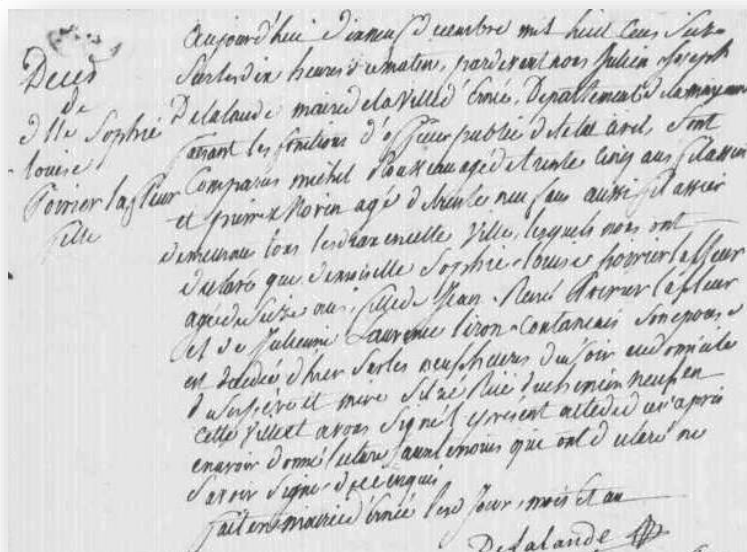 Décès
de
d.lle Sophie
louise
Poirier lafleur
fille
aujourd'hui dixneuf decembre mil huit cens sept
sur les dix heures du matin, pardevant nous Julien Joseph
Delalande maire de la ville d'Ernée, Département de la mayenne
faisant les fonctions d'officier public de l'etat civil, sont
Comparus michel agé de trente cinq ans filassier
et pierre Morin agé de trente neuf ans aussi filassier
demeurant tous les deux en cette ville, lesquels nous ont
declaré que demoiselle Sophie louise poirier lafleur
agée de Seize ans, fille de Jean René Poirier lafleur
et de Julienne Laurence son epouse
est décédée d'hier sur les neuf heures du soir au domicile
de ses père et mère situé Rue du chemin neuf en
Cette ville et avons signé le present acte de deces après
en avoir donné lecture aux temoins qui ont declaré ne
Savoir signer de ce enquis
fait en mairie d'Ernée les d. Jour, mois et an
Delalande